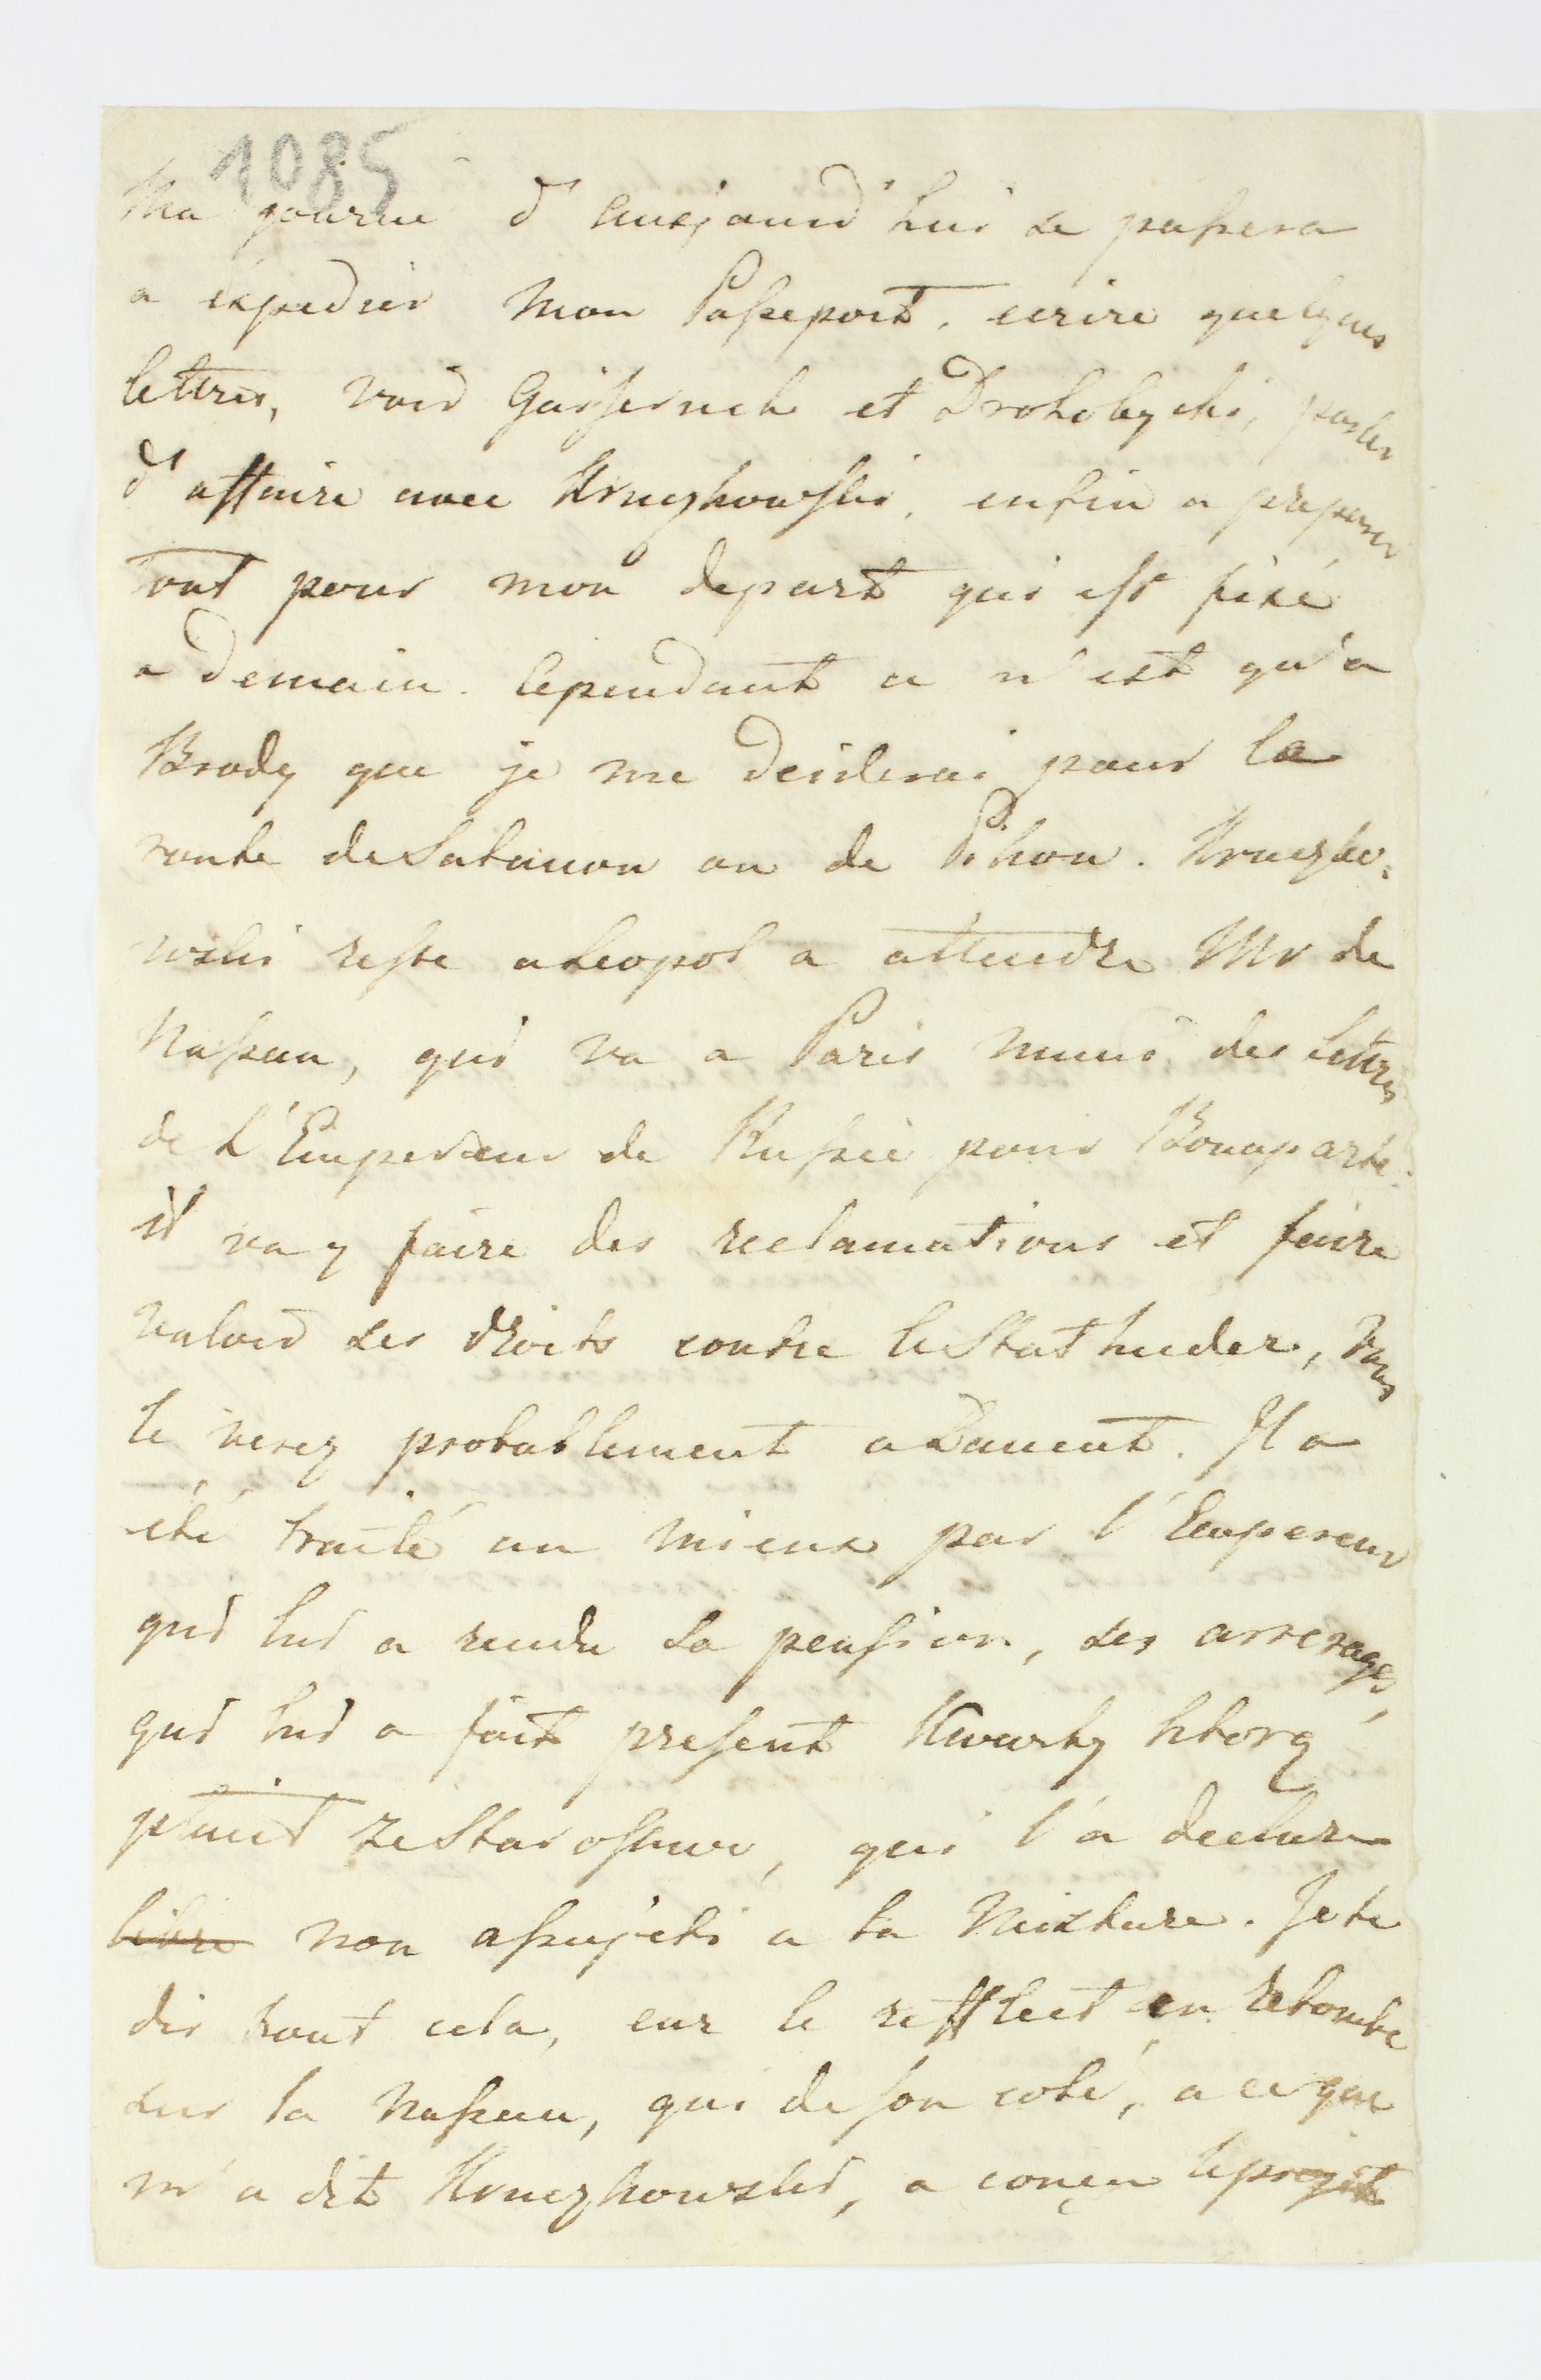 1085
Ma journé d'aujourd'hui se passera
a expedier mon Passeport, ecrire quelques
lettres, voir et Drohobycki, parler
d'affaire avec Kruczkowski, enfin a preparer
tout pour mon depart qui est fixé
a demain. Cependant ce n'est qu'a
Brody que je me deciderai pour la
route de Satanow ou de Pikow. Kruczko=
wski reste a Leopol a attendre Mr de
Nassau, qui va a Paris muni des lettres
de L'Empereur de Russie pour Bonaparte.
il va y faire des reclamations et faire
valoir ses droits contre le Stathuder, vous
le verez probablement a Lancut. Il a
été traité au mieux par l'Empereur
qui lui a rendu sa pension, ses arrerages,
qui lui a fait present Kwarty htorą
płacił ze Starostwa, qui l'a declare
libre non assujeti a la Mixture. Je te
dis tout cela, car le refflect en retombe
sur la Nassau, qui de son coté, a ce que
m'a dit Kruczkowski, a conçu le projet